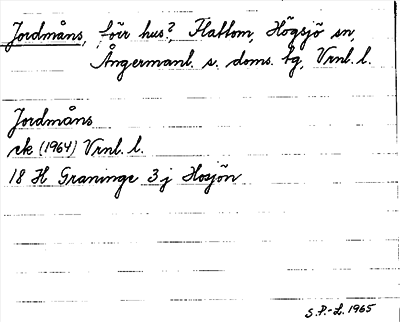 Jordmåns, förr hus?, Flattom, Högsjö sn,
Ångermanl. s. doms. tg, Vrnl. l.
Jordmåns
ek (1964) Vrnl. l.
18 H Graninge 3 j Hosjön
S.P.-L. 1965